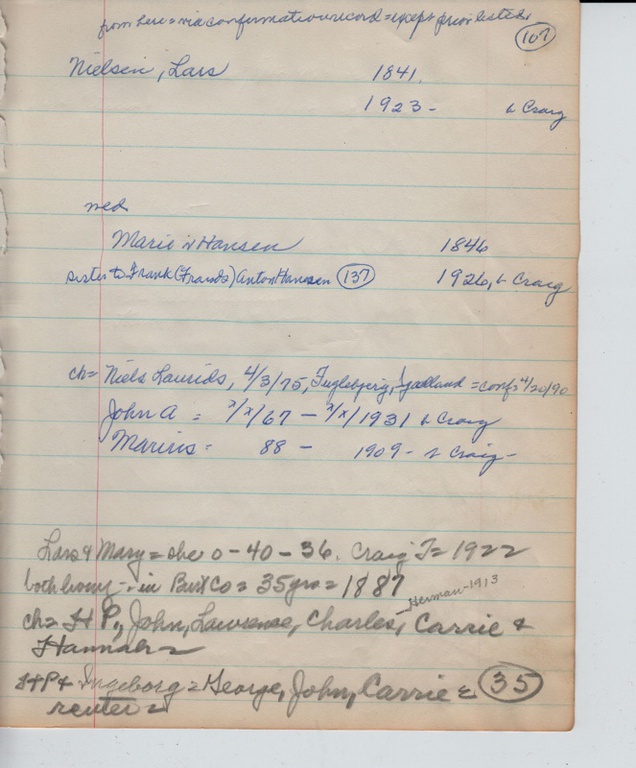 from here = via confirmation record = except prior listed
107
Nielsen, Lars 1841.
1923 - b Craig
med
Marie Hansen 1846
sister to Frank (Frands) Anton Hansen 137 1926, b Craig
ch = Niels Laurids, 4/3/75, Jylland = conf = 4/20/90
John A = x/x/67 - x/x/1931 b Craig
Marius = 88 - 1909 - b Craig -
Lars & Mary = she 0-40-36. Craig T = 1922
both living - in Burt Co = 35 yrs = 1887
Herman - 1913
ch = H P., John, Lawrence, Charles, Carrie &
Hannah =
H P & Ingeborg = George, John, Carrie = 35
renter =